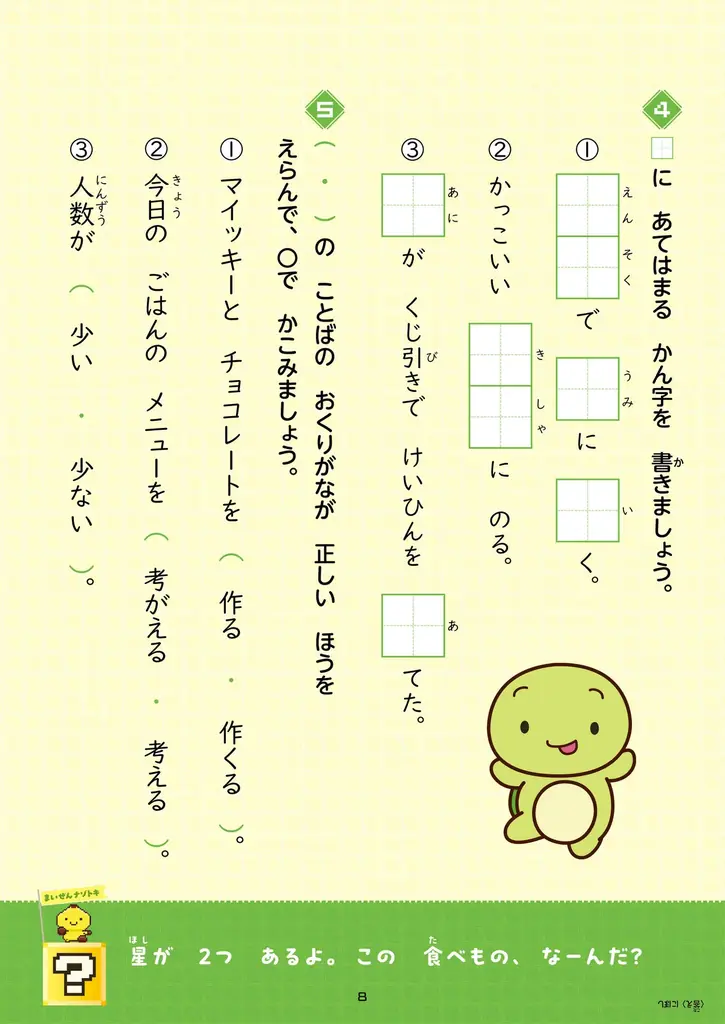 4
□に あてはまる かん字を 書きましょう。
か
① □□で □に □く。
えんそく
うみ
い
② かっこいい □□に のる。
きしゃ
③ □が くじ引きで けいひんを □てた。
あに
び
あ
5
(・)の ことばの おくりがなが 正しい ほうを
えらんで、○で かこみましょう。
① マイッキーと チョコレートを ( 作る ・ 作くる )。
② 今日の ごはんの メニューを ( 考がえる ・ 考える )。
きょう
③ 人数が ( 少い ・ 少ない )。
にんずう
まいぜんナゾトキ
?
星が 2つ あるよ。この 食べもの、なーんだ?
ほし
た
8
〈答え〉にぼし